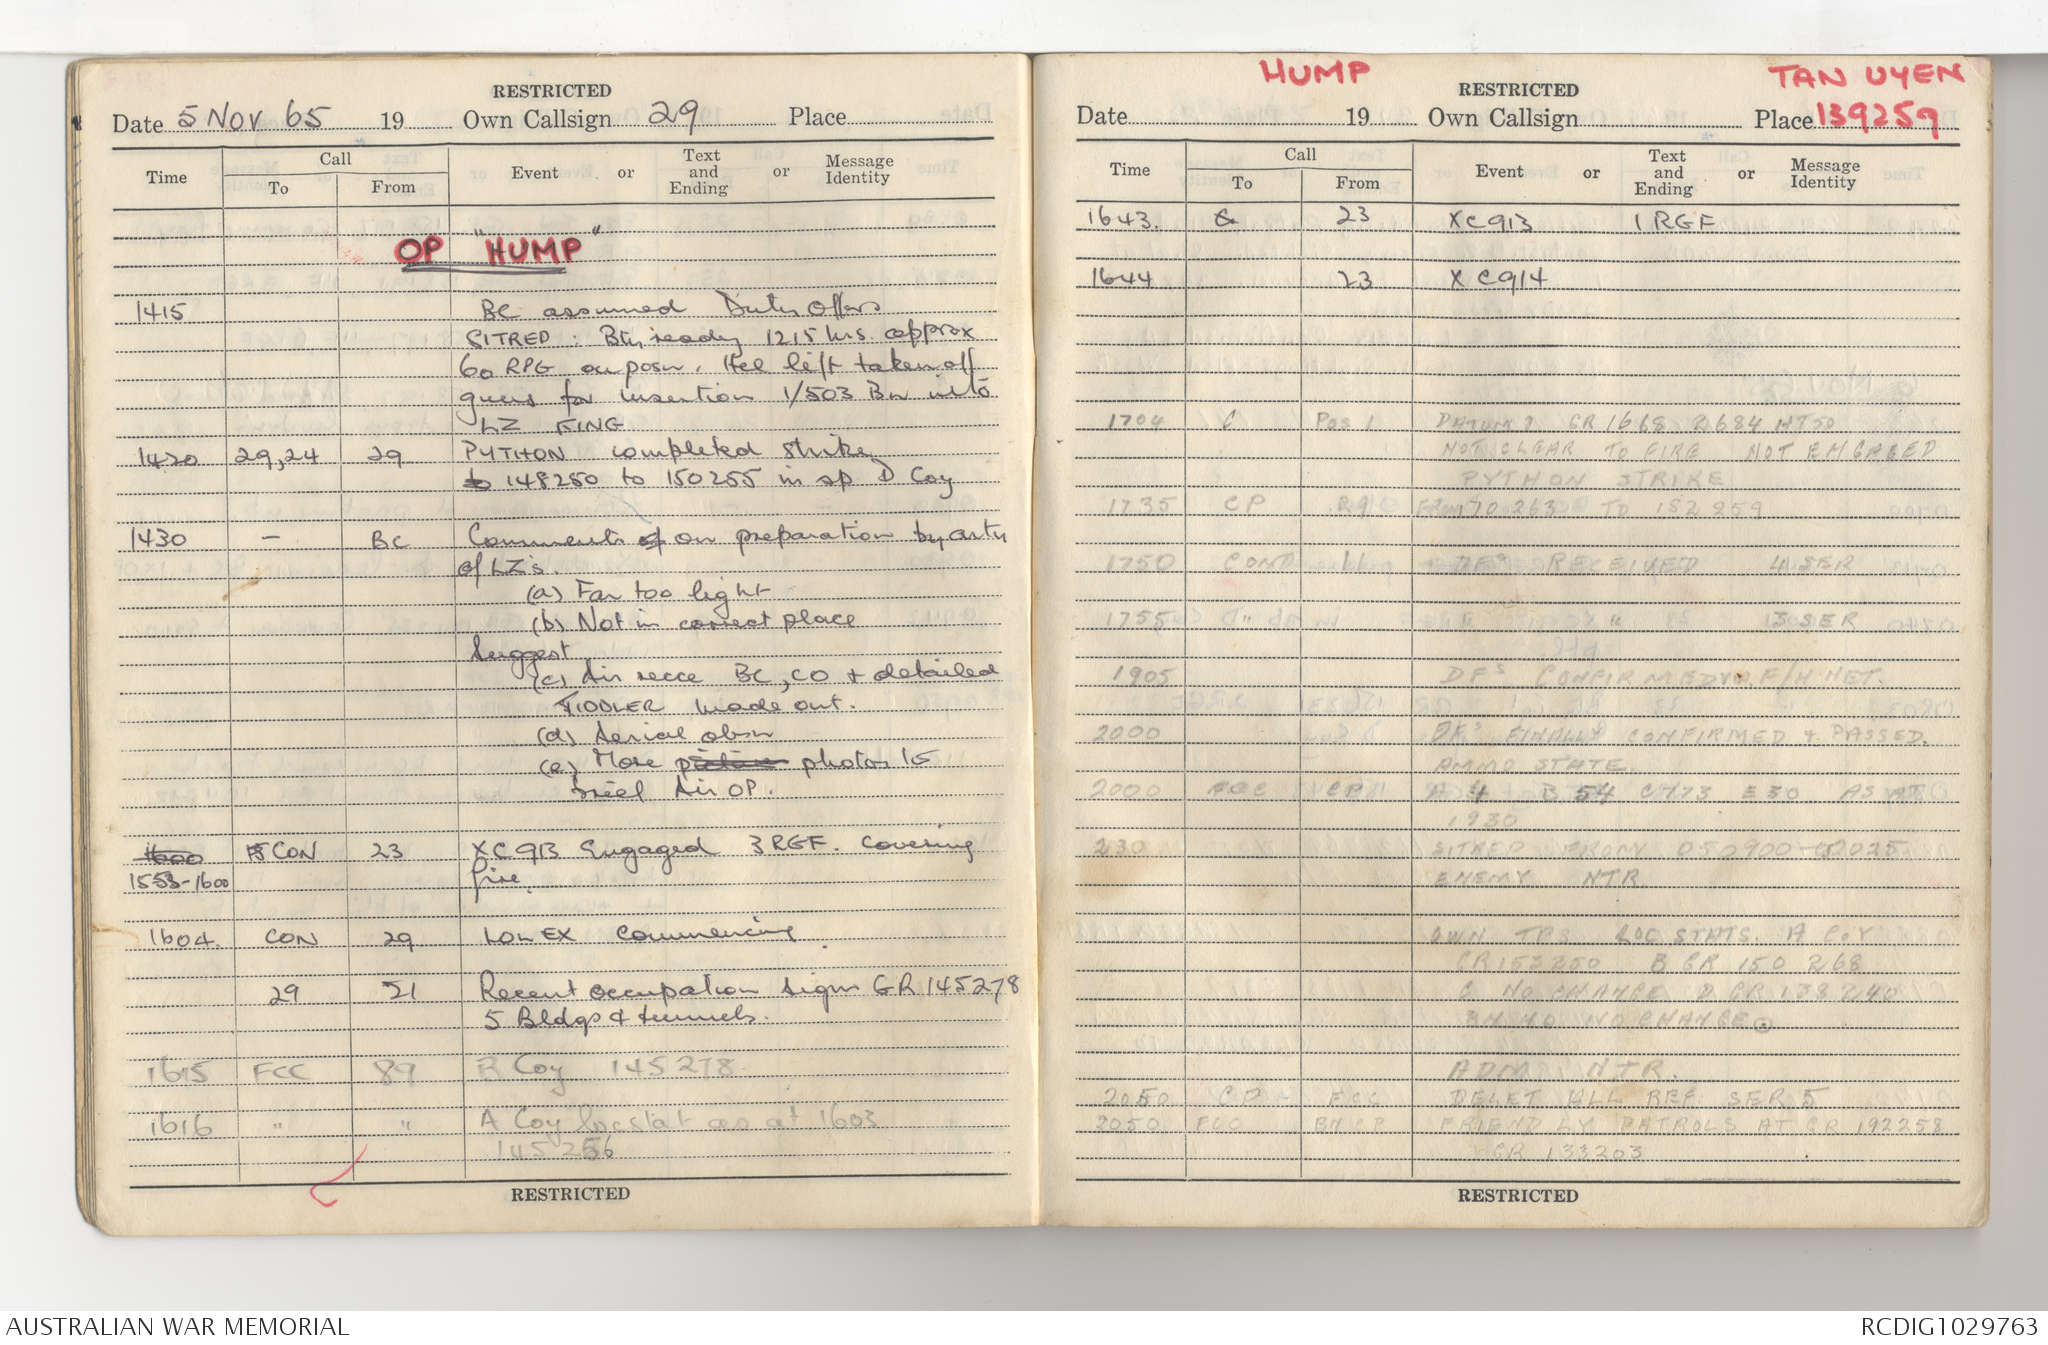 RESTRICTED
Date 5 Nov 65 19 Own Callsign 29 Place
Time Call To From Event or Text and Ending or Message Identity
OP "HUMP"
1415 BC assumed Duty Offers
SITREP : Btry ready 1215 hrs. approx
60 RPG on posn. Hel lift taken off
guns for insertion 1/503 Bn into
LZ KING
1420 29,24 29 PYTHON completed strike
148250 to 150255 in sp D Coy
1430 - BC Comments on preparation by arty
of LZ's.
(a) Far too light
(b) Not in correct place
Suggest
(c) Air recce BC, CO + detailed
FIDDLER made out.
(d) Aerial obsn
(e) More photos to
brief Air OP.
1600 CON 23 XC913 Engaged 3 RGF. Covering
1553-1600 fire.
1604 CON 29 LOLEX Commencing.
29 21 Recent occupation signs GR 145278
5 Bldgs & tunnels.
1615 FCC 89 B Coy 145278
1616 " " A Coy locstat as at 1603
145256
RESTRICTED
HUMP TAN UYEN
RESTRICTED
Date 19 Own Callsign Place 139259
Time Call To From Event or Text and Ending or Message Identity
1643. 23 XC913 1 RGF
1644 23 XC914
1704 C Pos 1 DATUM 2 GR 1668 2684 HT50
NOT CLEAR TO FIRE NOT ENGAGED
PYTHON STRIKE
1735 CP 29 263 TO 152259
1750 CON 11 DFs RECEIVED 4 SER
1755 " " 13 SER
1905 DFs CONFIRMED F/H NET.
2000 DFs FINALLY CONFIRMED & PASSED.
AMMO STATE.
2000 FCC CP A 4 B 54 C 173 E 30 AS AT
1930
SITREP FROM 050900-052025
ENEMY NTR
OWN TPS LOCSTATS. A COY
GR 153250 B GR 150 268
C NO CHANGE D GR 138240
BN HQ NO CHANGE
ADM NTR.
2050 CP FCC DELET ALL REF SER 5
2050 FCC BN CP FRIENDLY PATROLS AT GR 192258
GR 133203
RESTRICTED
AUSTRALIAN WAR MEMORIAL RCDIG1029763